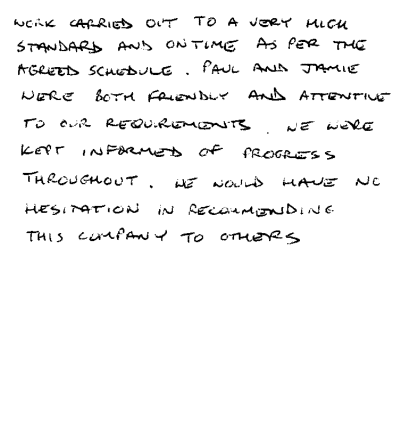 WORK CARRIED OUT TO A VERY HIGH
STANDARD AND ON TIME AS PER THE
AGREED SCHEDULE. PAUL AND JAMIE
WERE BOTH FRIENDLY AND ATTENTIVE
TO OUR REQUIREMENTS. WE WERE
KEPT INFORMED OF PROGRESS
THROUGHOUT. WE WOULD HAVE NO
HESITATION IN RECOMMENDING
THIS COMPANY TO OTHERS